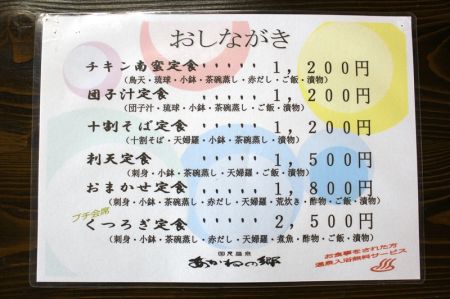 おしながき
チキン南蛮定食 ‥‥‥ 1,200円
(鳥天・琉球・小鉢・茶碗蒸し・赤だし・ご飯・漬物)
団子汁定食 ‥‥‥ 1,200円
(団子汁・琉球・小鉢・茶碗蒸し・ご飯・漬物)
十割そば定食 ‥‥‥ 1,200円
(十割そば・天婦羅・小鉢・茶碗蒸し・ご飯・漬物)
刺天定食 ‥‥‥ 1,500円
(刺身・小鉢・茶碗蒸し・赤だし・天婦羅・ご飯・漬物)
おまかせ定食 ‥‥‥ 1,800円
(刺身・小鉢・茶碗蒸し・赤だし・天婦羅・荒炊き・酢物・ご飯・漬物)
プチ会席
くつろぎ定食 ‥‥‥ 2,500円
(刺身・小鉢・茶碗蒸し・赤だし・天婦羅・煮魚・酢物・ご飯・漬物)
国見温泉
あかねの郷
お食事をされた方
温泉入浴無料サービス